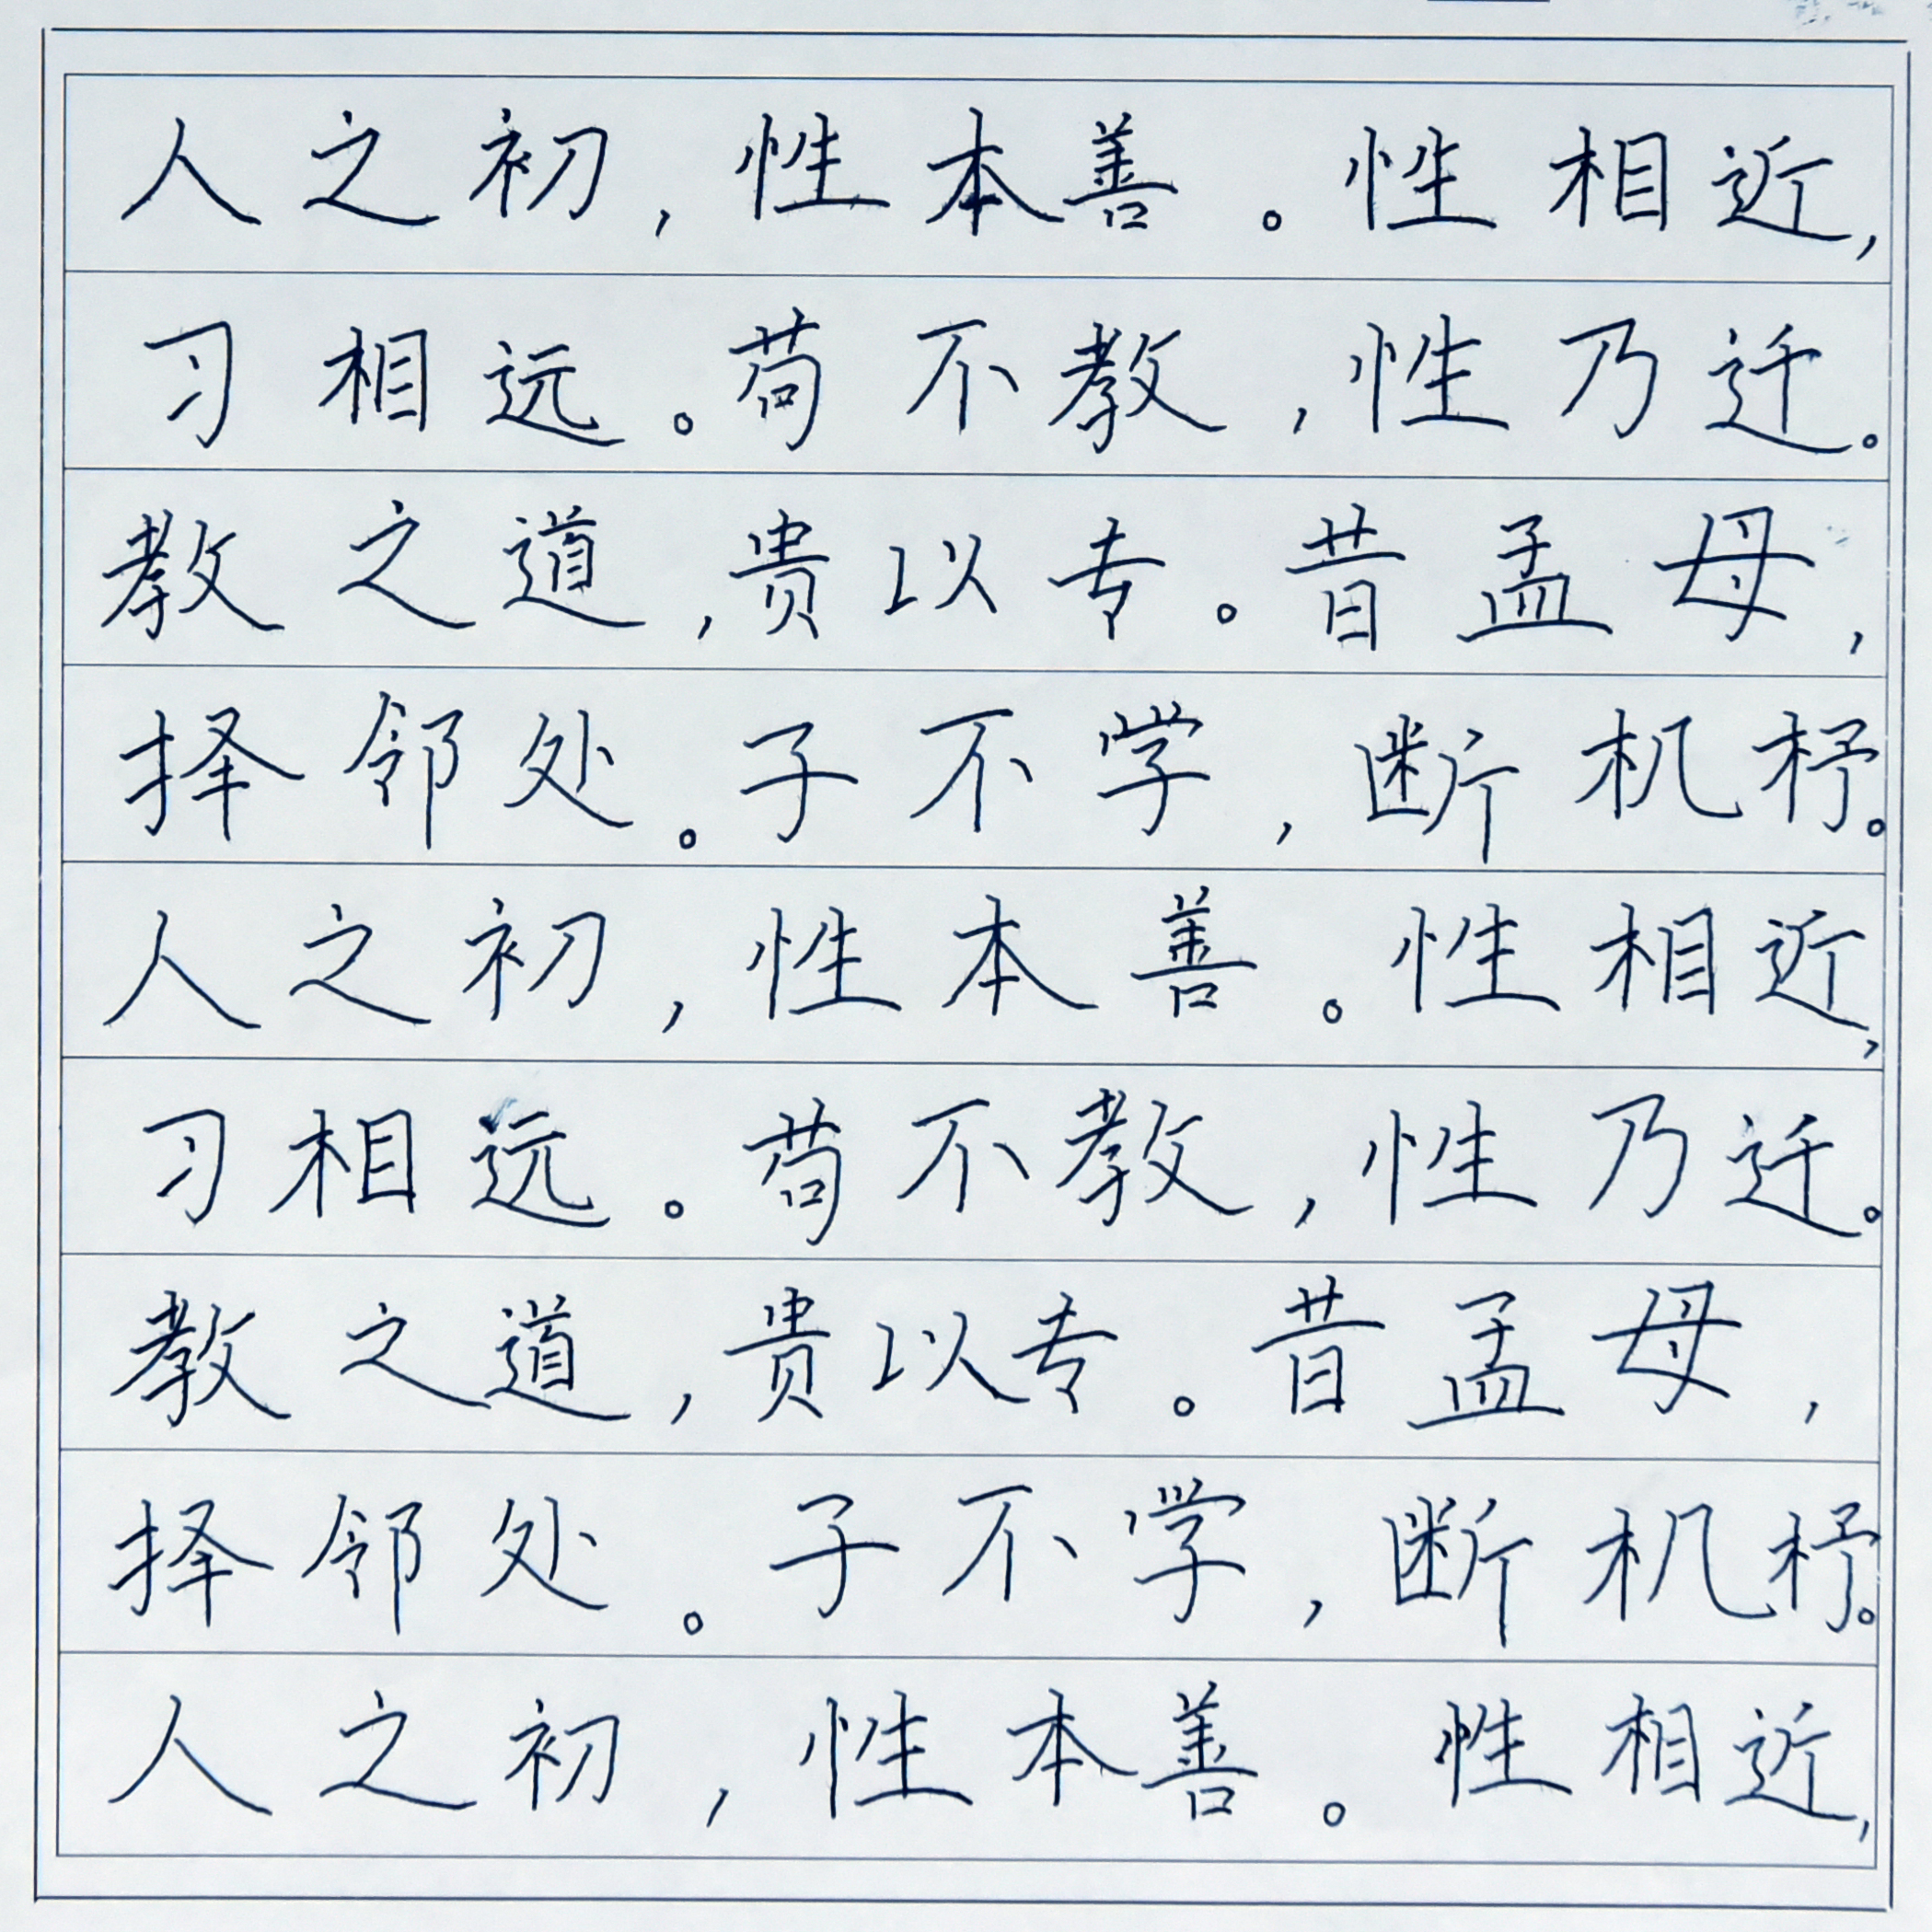 人之初，性本善。性相近，
习相远。苟不教，性乃迁。
教之道，贵以专。昔孟母，
择邻处。子不学，断机杼。
人之初，性本善。性相近，
习相远。苟不教，性乃迁。
教之道，贵以专。昔孟母，
择邻处。子不学，断机杼。
人之初，性本善。性相近，